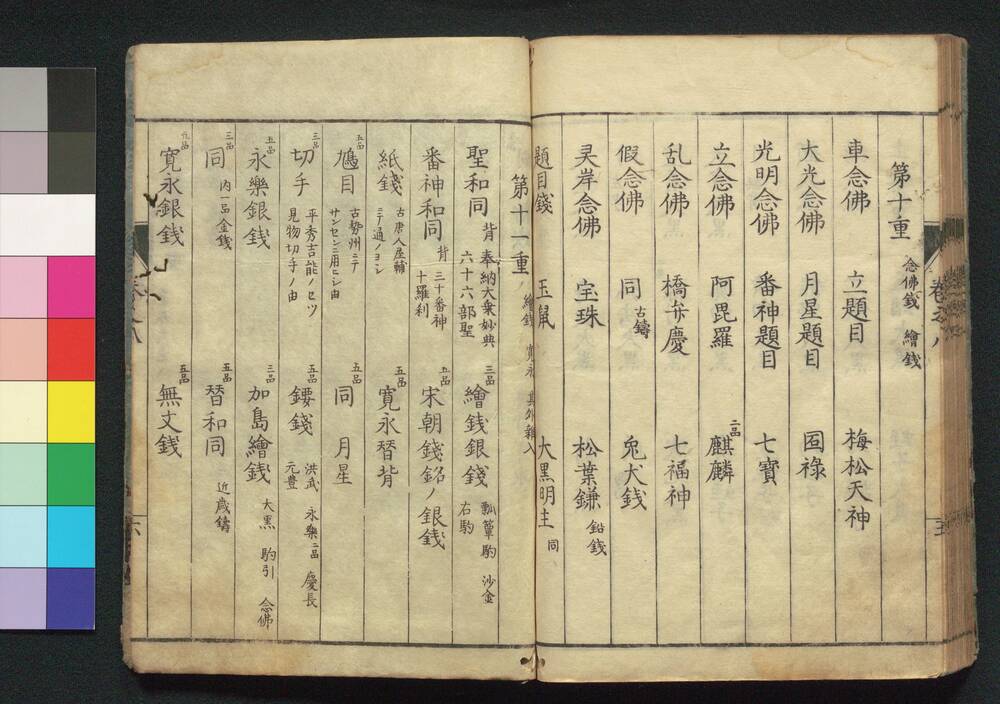 第十重 念佛錢 繪錢
車念佛 立題目 梅松天神
大光念佛 月星題目 囼祿
光明念佛 番神題目 七寳
立念佛 阿毘羅 二品 麒麟
乱念佛 橋弁慶 七福神
假念佛 同 古鑄 兎犬錢
灵岸念佛 宝珠 松葉鎌 鉛錢
題目錢 玉鼠 大黒明主 同
第十一重 繪錢 寛永 其外雜入
聖和同 背 奉納大乗妙典 六十六部聖 三品 繪錢銀錢 瓢箪駒 沙金 右駒
番神和同 背 三十番神 十羅利 五品 宋朝錢銘ノ銀錢
紙錢 古唐人屋鋪ニテ通ノヨシ 五品 寛永替背
五品 鳩目 古勢州ニテサンセンニ用ヒシ由 五品 同 月星
三品 切手 平秀吉能ノセツ見物切手ノ由 五品 鏤錢 洪武 永樂 二品 慶長 元豊
五品 永樂銀錢 三品 加島繪錢 大黒 駒引 念佛
三品 同 内一品金錢 五品 替和同 近歳鑄
九品 寛永銀錢 五品 無文錢